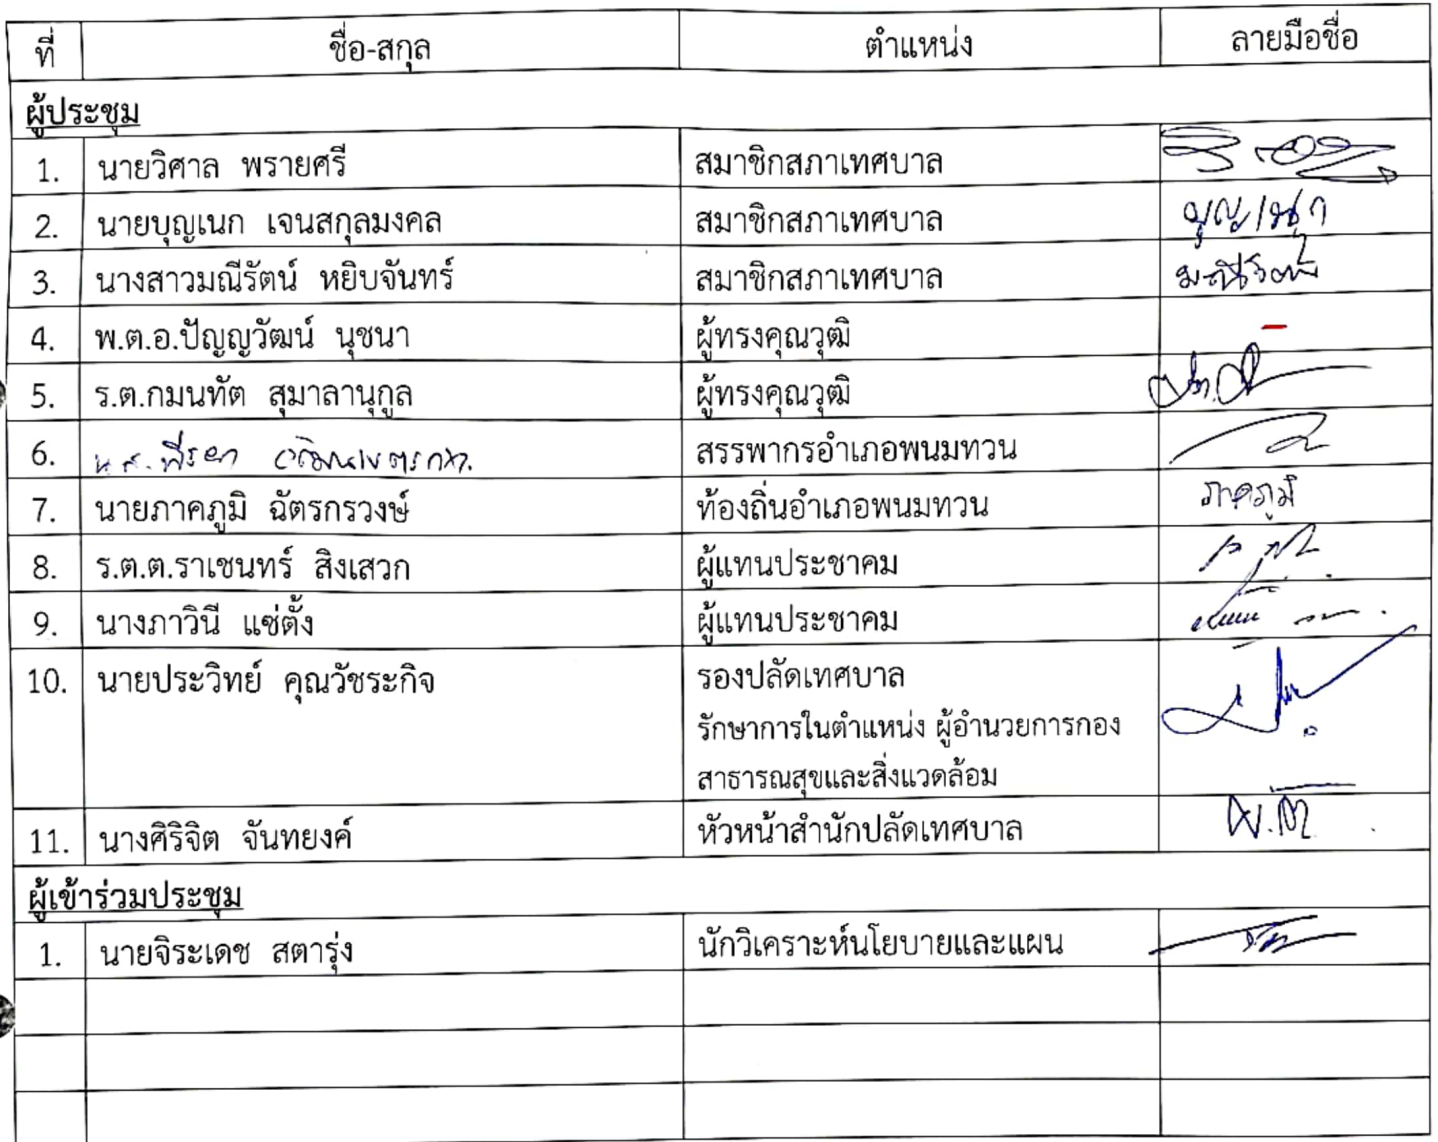 ที่ ชื่อ-สกุล ตำแหน่ง ลายมือชื่อ
ผู้ประชุม
1. นายวิศาล พรายศรี สมาชิกสภาเทศบาล
2. นายบุญเนก เจนสกุลมงคล สมาชิกสภาเทศบาล
3. นางสาวมณีรัตน์ หยิบจันทร์ สมาชิกสภาเทศบาล มณีรัตน์
4. พ.ต.อ.ปัญญวัฒน์ นุชนา ผู้ทรงคุณวุฒิ -
5. ร.ต.กมนทัต สุมาลานุกูล ผู้ทรงคุณวุฒิ
6. สรรพากรอำเภอพนมทวน
7. นายภาคภูมิ ฉัตรกรวงษ์ ท้องถิ่นอำเภอพนมทวน ภาคภูมิ
8. ร.ต.ต.ราเชนทร์ สิงเสวก ผู้แทนประชาคม
9. นางภาวินี แซ่ตั้ง ผู้แทนประชาคม
10. นายประวิทย์ คุณวัชระกิจ รองปลัดเทศบาล
รักษาการในตำแหน่ง ผู้อำนวยการกอง
สาธารณสุขและสิ่งแวดล้อม
11. นางศิริจิต จันทยงค์ หัวหน้าสำนักปลัดเทศบาล
ผู้เข้าร่วมประชุม
1. นายจิระเดช สตารุ่ง นักวิเคราะห์นโยบายและแผน